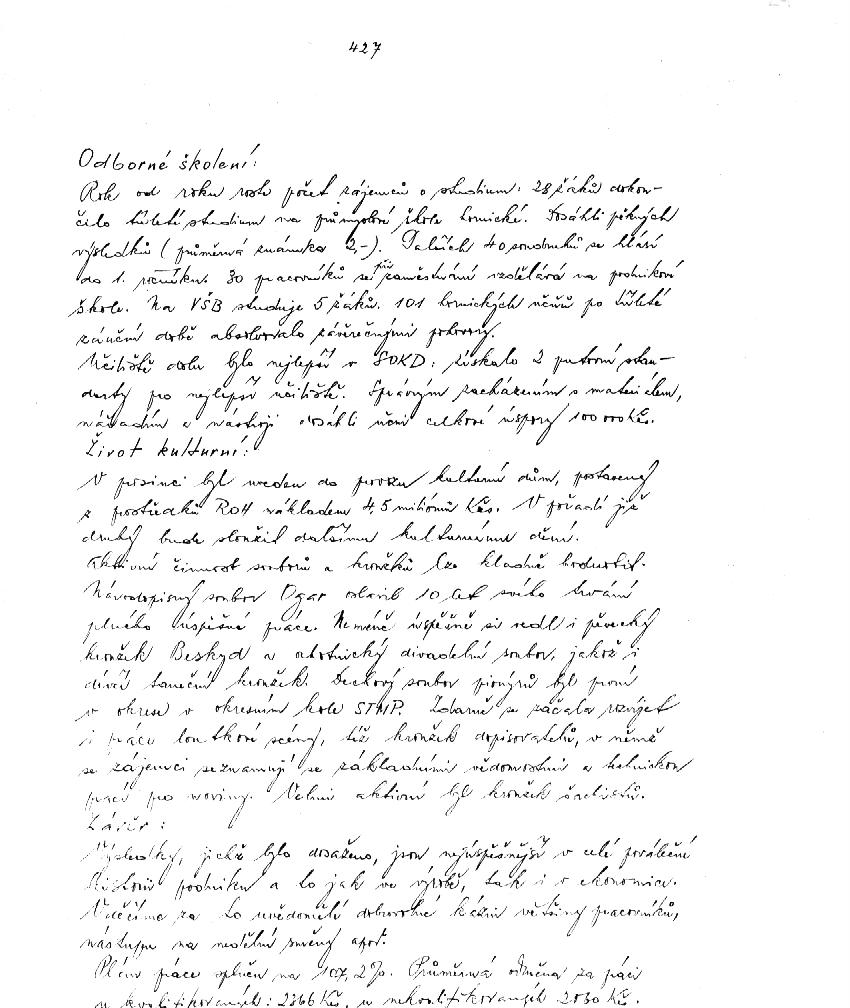 427
Odborné školení:
Rok od roku roste počet zájemců o studium: 28 žáků dokon-
čilo tříleté studium na průmyslové škole hornické. Dosáhli pěkných
výsledků (průměrná známka 2,-). Dalších 40 soudruhů se hlásí
do 1. ročníku. 30 pracovníků se při zaměstnání vzdělává na podnikové
škole. Na VŠB studuje 5 žáků. 101 hornických učňů po tříleté
záuční době absolvovalo závěrečnými pohovory.
Učiliště dolu bylo nejlepší v SOKD: získalo 2 putovní stan-
darty pro nejlepší učiliště. Správným zacházením s materiálem,
nářadím a nástroji dosáhli učni celkové úspory 100 000 Kčs.
Život kulturní:
V prosinci byl uveden do provozu kulturní dům, postavený
z prostředků ROH nákladem 4,5 miliónů Kčs. V pořadí již
druhý bude sloužit dalšímu kulturnímu dění.
Aktivní činnost souborů a kroužků lze kladně hodnotit.
Národopisný soubor Ogar oslavil 10 let svého trvání
plného úspěšné práce. Neméně úspěšně si vedl i pěvecký
kroužek Beskyd a ochotnický divadelní soubor, jakož i
dívčí taneční kroužek. Dechový soubor pionýrů byl první
v okrese v okresním kole STMP. Zdárně se začala rozvíjet
i práce loutkové scény, též kroužek dopisovatelů, v němž
se zájemci seznamují se základními vědomostmi a technikou
prací pro noviny. Velmi aktivní byl kroužek šachistů.
Závěr:
Výsledky, jichž bylo dosaženo, jsou nejúspěšnější v celé poválečné
historii podniku a to jak ve výrobě, tak i v ekonomice.
Vděčíme za to uvědomělé dobrovolné kázni většiny pracovníků,
nástupu na nedělní směny apod.
Plán práce splněn na 107,2%. Průměrná odměna za práci
u kvalifikovaných: 2366 Kčs, u nekvalifikovaných 2030 Kčs.